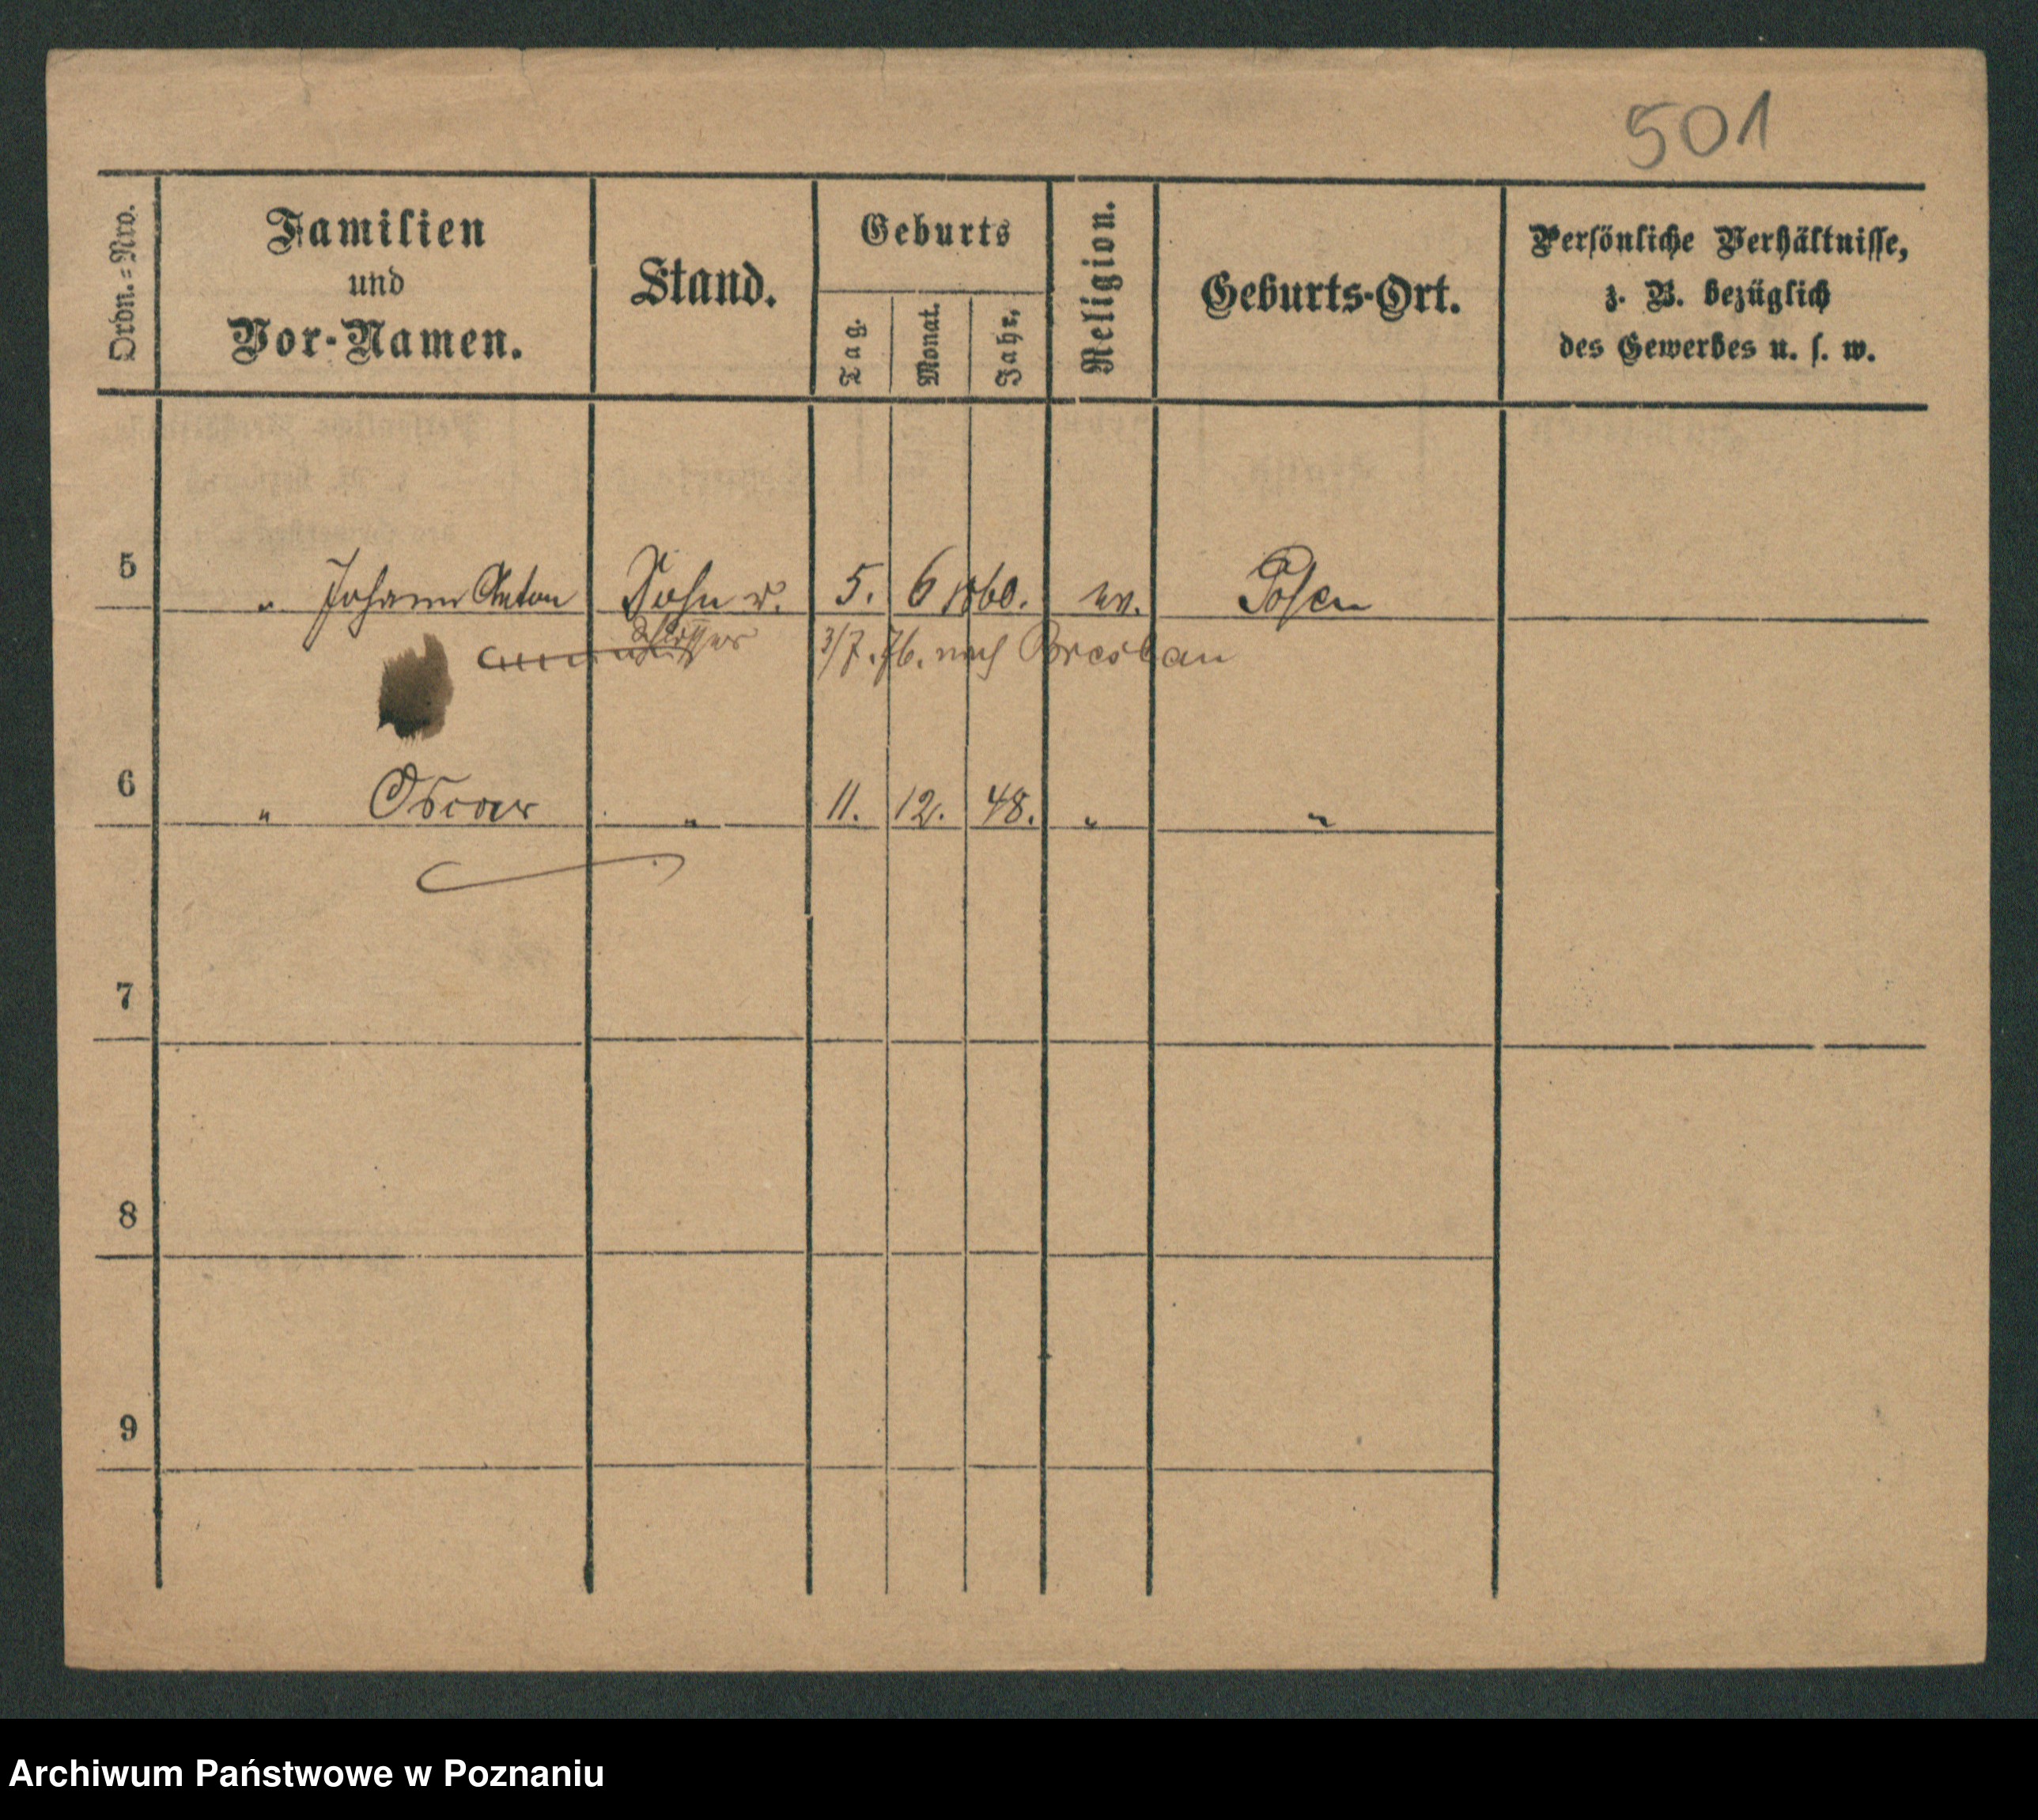 501
Ordn.=Nro.
Familien
und
Vor-Namen.
Stand.
Geburts
Tag.
Monat.
Jahr.
Religion.
Geburts-Ort.
Persönliche Verhältnisse,
z. B. bezüglich
des Gewerbes u. s. w.
5 " Johann Anton Sohn v. 5. 6 1860. ev. Posen
Schlosser 3/7. 76. nach Breslau
6 " Oscar " 11. 12. 48. " "
7
8
9
Archiwum Państwowe w Poznaniu